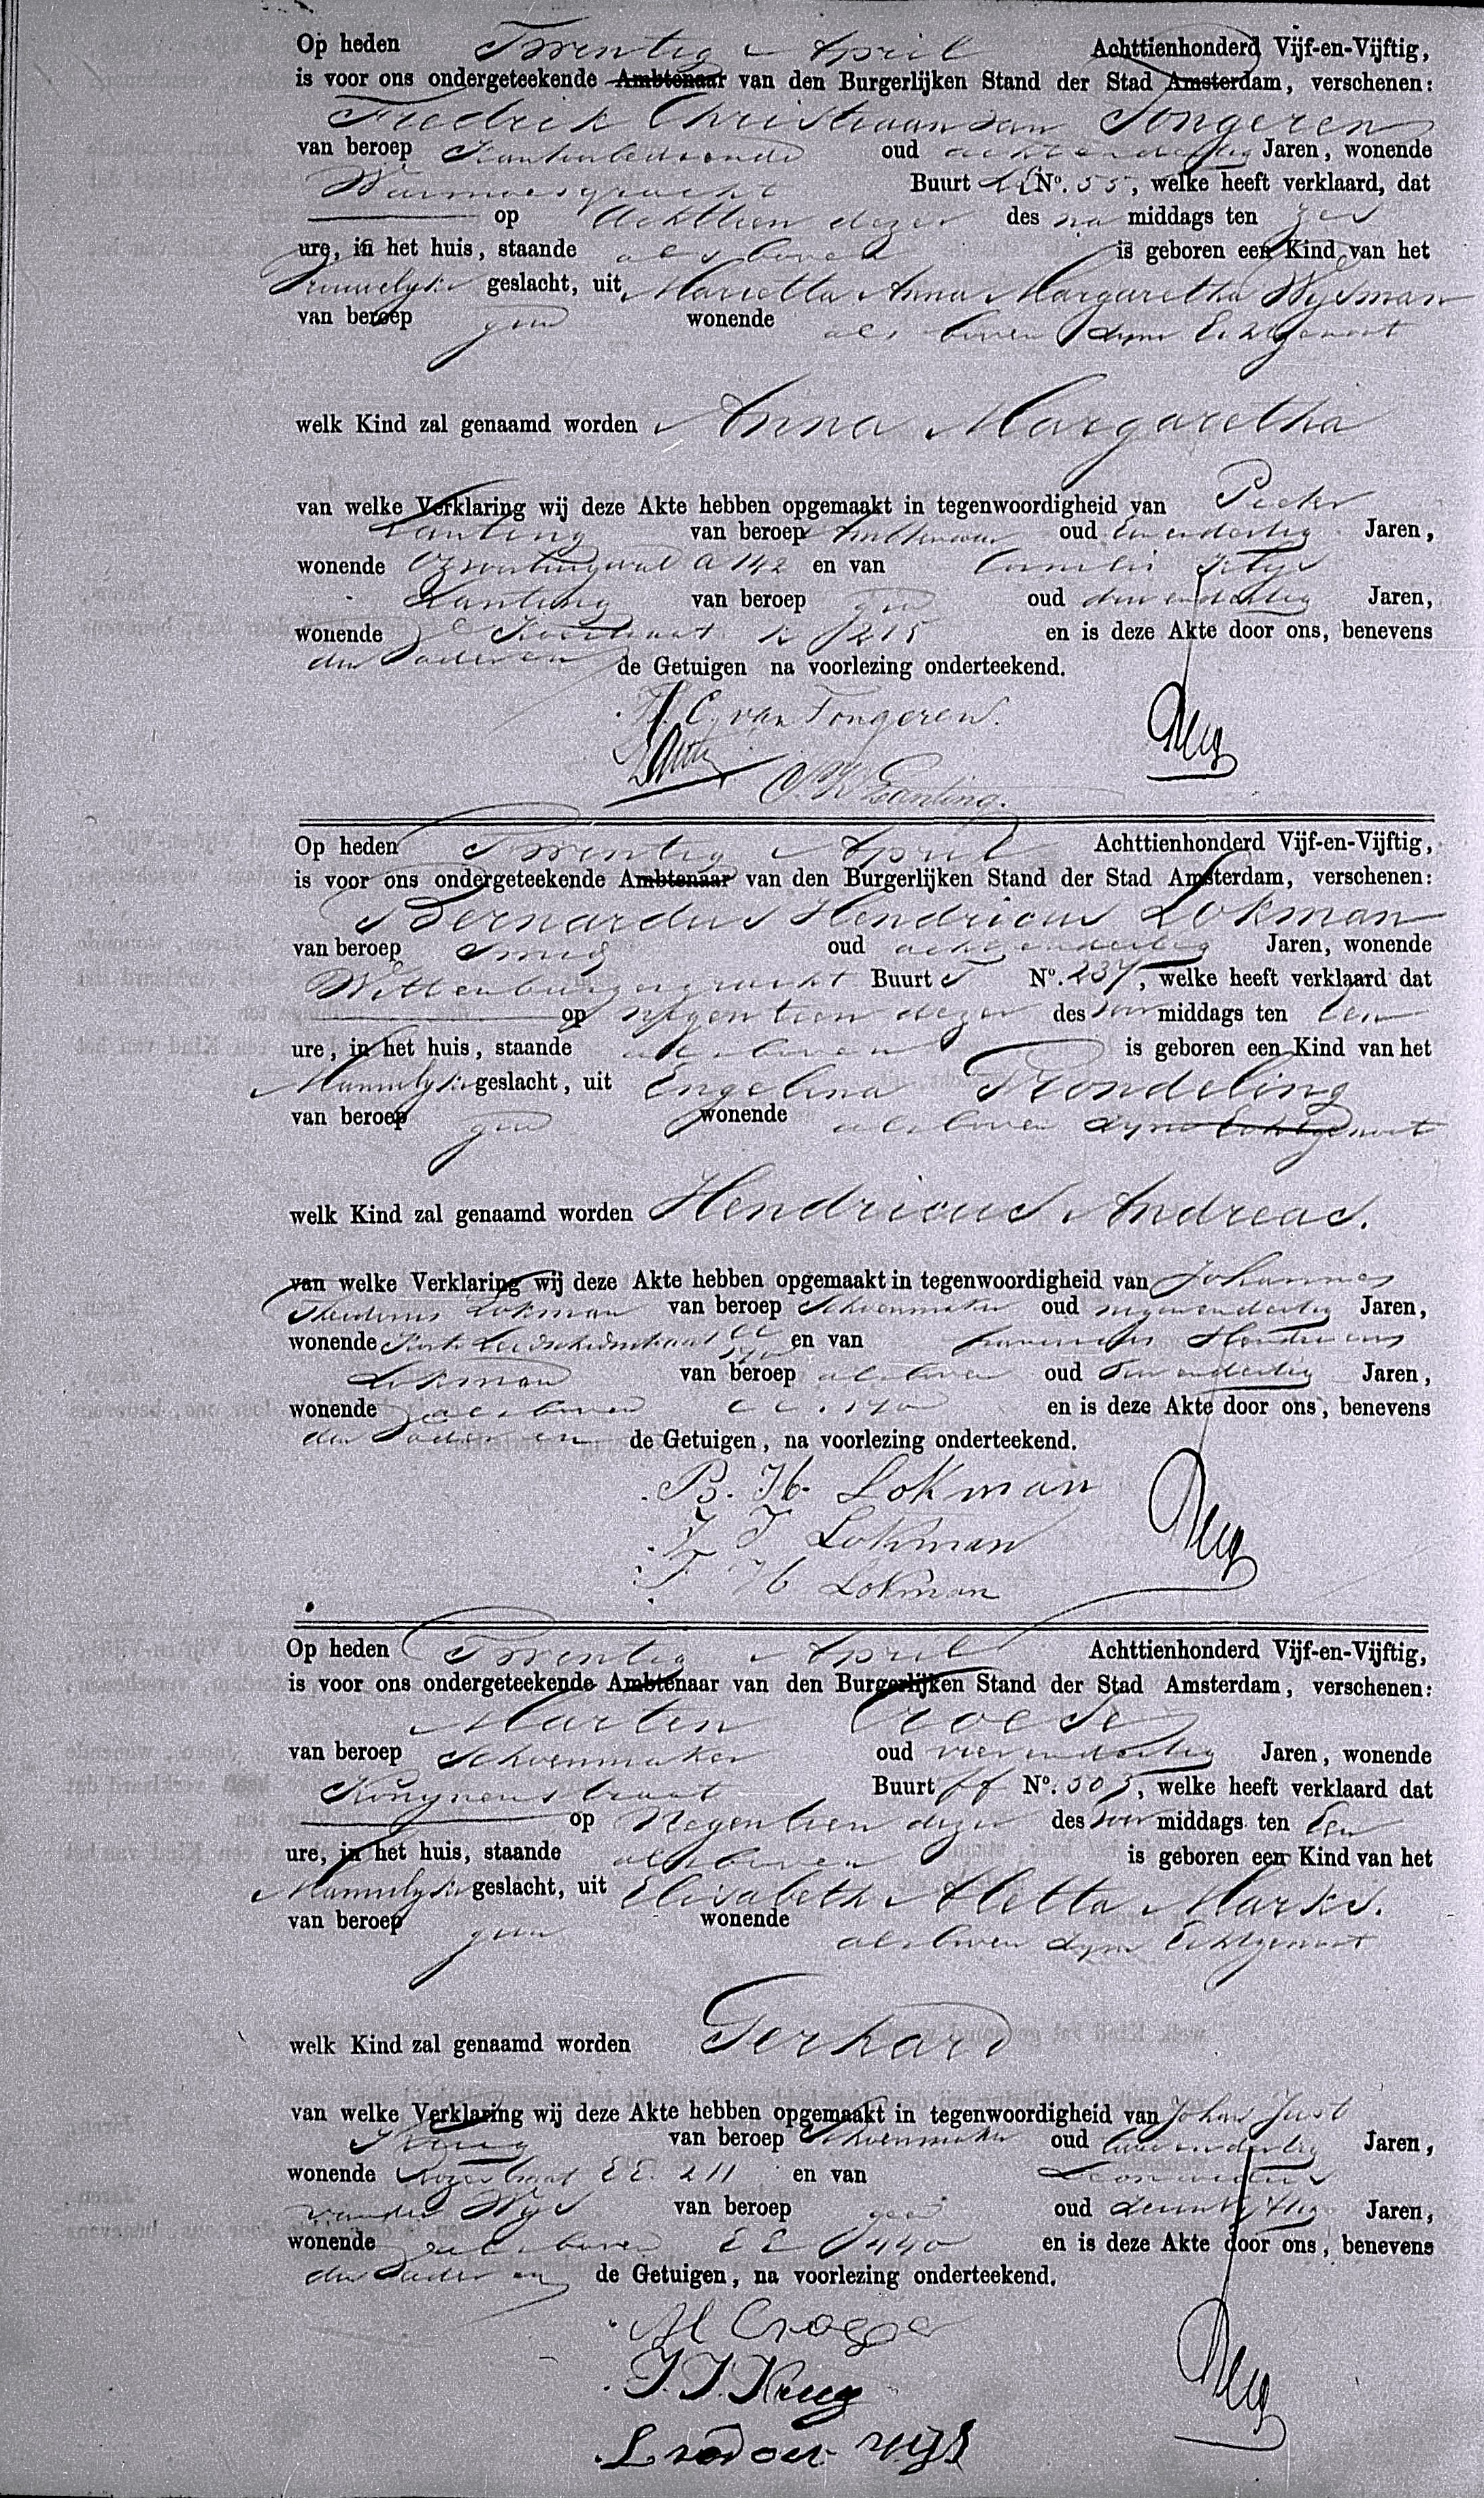 Op heden Twintig April Achttienhonderd Vijf-en-Vijftig,
is voor ons ondergeteekende Ambtenaar van den Burgerlijken Stand der Stad Amsterdam, verschenen:
Fredrik Christiaan van Tongeren
van beroep Kantoorbediende oud achtendertig Jaren, wonende
Warmoesgracht Buurt No. 55, welke heeft verklaard, dat
op Achttien dezer des na middags ten zes
ure, in het huis, staande als boven is geboren een Kind van het
Vrouwelijke geslacht, uit Marietta Anna Margaretha Wijsman
van beroep geen wonende als boven zijne Echtgenoot
welk Kind zal genaamd worden Anna Margaretha
van welke Verklaring wij deze Akte hebben opgemaakt in tegenwoordigheid van Pieter
Lanting van beroep Ambtenaar oud Eenendertig Jaren,
wonende OZ Voorburgwal A 142 en van
Lanting van beroep geen oud Jaren,
wonende K 215 en is deze Akte door ons, benevens
den Vader en de Getuigen na voorlezing onderteekend.
F. C. van Tongeren.
Lanting.
Op heden Twintig April Achttienhonderd Vijf-en-Vijftig,
is voor ons ondergeteekende Ambtenaar van den Burgerlijken Stand der Stad Amsterdam, verschenen:
Bernardus Hendricus Lokman
van beroep Smid oud achtendertig Jaren, wonende
Wittenburgergracht Buurt T No. 237, welke heeft verklaard dat
op negentien dezer des voor middags ten een
ure, in het huis, staande als boven is geboren een Kind van het
Mannelijke geslacht, uit Engelina Frondeling
van beroep geen wonende als boven zijne Echtgenoot
welk Kind zal genaamd worden Hendricus Andreas.
van welke Verklaring wij deze Akte hebben opgemaakt in tegenwoordigheid van Johannes
Theodorus Lokman van beroep Schoenmaker oud negenendertig Jaren,
wonende Korte Leidschedwarsstraat en van Franciscus Hendricus
Lokman van beroep als boven oud Jaren,
wonende als boven en is deze Akte door ons, benevens
den Vader en de Getuigen, na voorlezing onderteekend.
B. H. Lokman
J T Lokman
F H Lokman
Op heden Twintig April Achttienhonderd Vijf-en-Vijftig,
is voor ons ondergeteekende Ambtenaar van den Burgerlijken Stand der Stad Amsterdam, verschenen:
Marten Croese
van beroep Schoenmaker oud vierendertig Jaren, wonende
Konijnenstraat Buurt ff No. 303, welke heeft verklaard dat
op Negentien dezer des voor middags ten Een
ure, in het huis, staande als boven is geboren een Kind van het
Mannelijke geslacht, uit Elisabeth Aletta Marks.
van beroep geen wonende als boven zijne Echtgenoot
welk Kind zal genaamd worden Gerhard
van welke Verklaring wij deze Akte hebben opgemaakt in tegenwoordigheid van Johan Just
Krug van beroep Schoenmaker oud Jaren,
wonende Rozestraat EE. 211 en van Leonardus
van der Wijs van beroep geen oud Jaren,
wonende als boven EE 440 en is deze Akte door ons, benevens
den Vader en de Getuigen, na voorlezing onderteekend.
M Croese
J. J. Krug